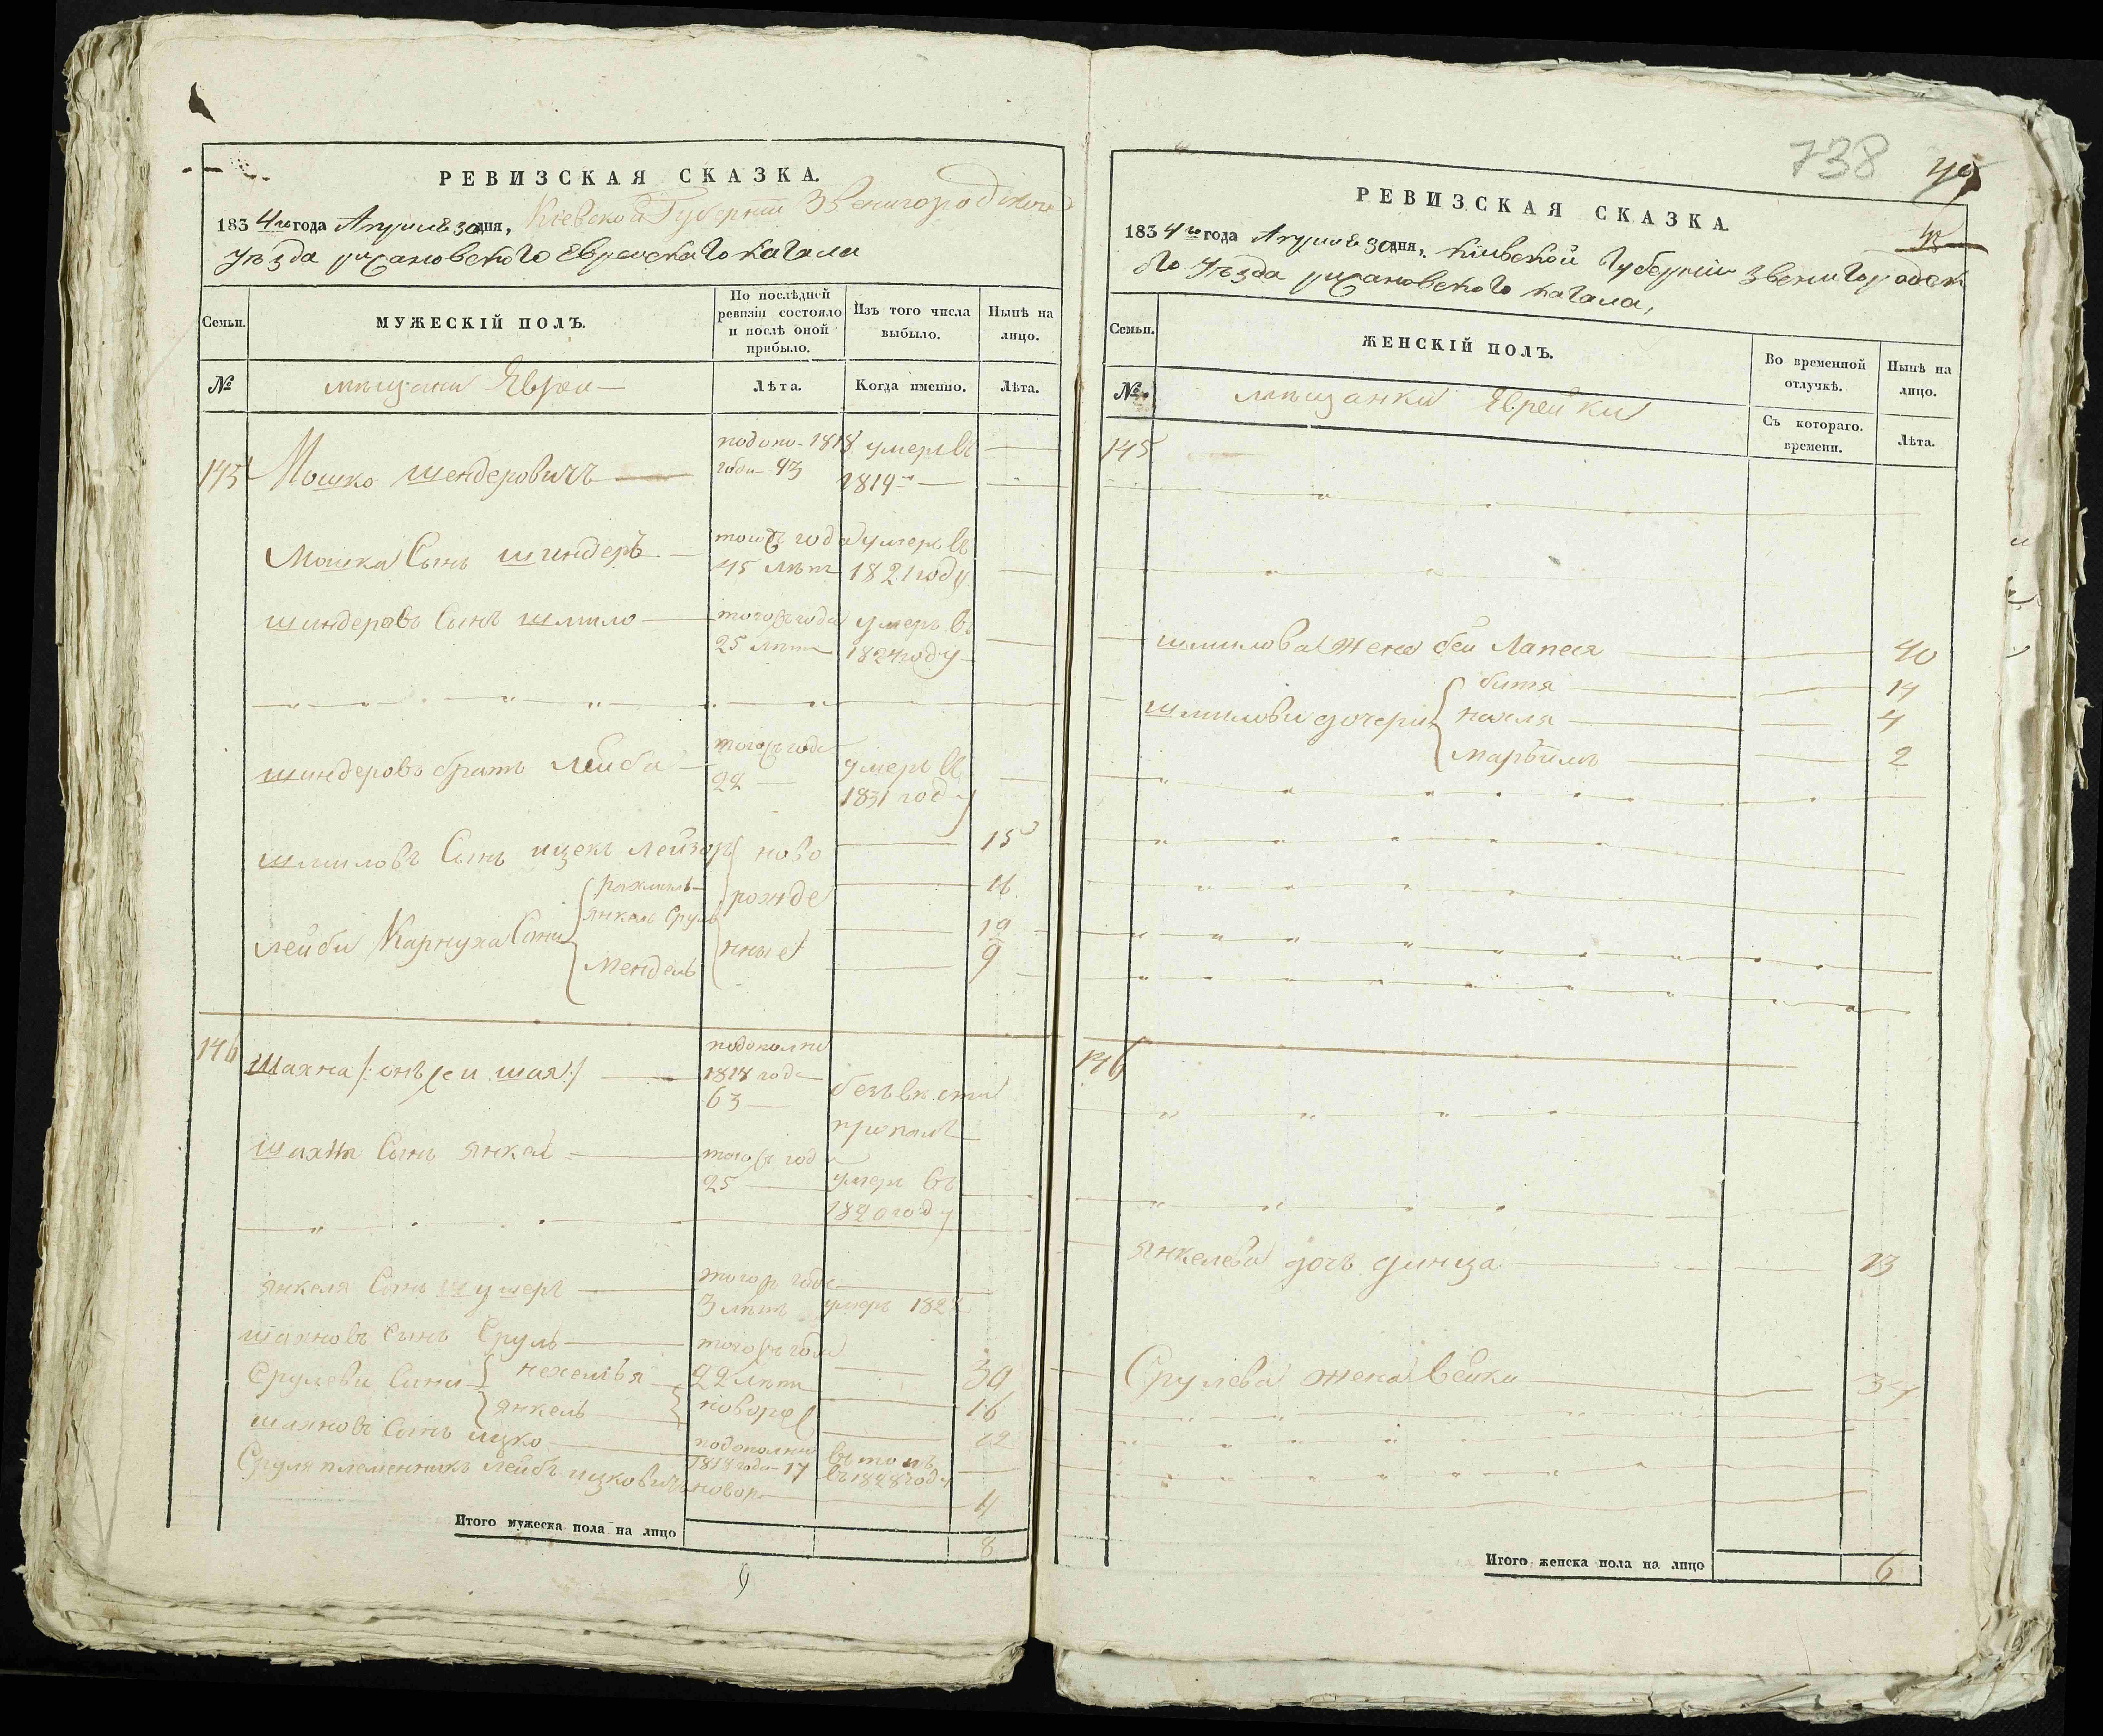 РЕВИЗСКАЯ СКАЗКА.
1834го года Апреля 30 дня, Кіевской Губерніи Звенигородскаго
уезда рижановского Еврейскаго кагала
Семьи.
МУЖЕСКІЙ ПОЛЪ.
По послѣдней ревизіи состояло и послѣ оной прибыло.
Изъ того числа выбыло.
Нынѣ на лицо.
№
мещани Евреи
Лѣта.
Когда именно.
Лѣта.
145 Мошко шендеровичъ
1818 года 43
умеръ въ 1819
Мошка Сынъ шиндеръ
тогожъ года 45 летъ
умеръ въ 1821 году
шиндеровъ Сынъ шмило
тогожъ года 25 летъ
умеръ въ 1824 году
шиндеровъ братъ Лейба
тогожъ года 22
умеръ въ 1831 году
шмиловъ Сынъ ицекъ Лейзоръ
новорожденные
15
Лейби Карнуха Сини
рахмиль
16
янкель Сруль
19
Мендель
9
146 Шахна /: онъ же и шая :/
1818 года 63
безъ вести пропалъ
Шахна Сынъ янкель
тогожъ года 25
умеръ въ 1820 году
янкеля Синъ шумеръ
тогожъ года 3 летъ
умеръ 182
шахновъ Синъ Сруль
тогожъ года 22 летъ
39
Срулеви Сини
нехемъя
16
янкель
новорож
12
шахновъ Синъ ицко
1818 года 17
въ 1828 году
Сруля племенникъ Лейбъ ицковичъ
новор
11
Итого мужеска пола на лицо
8
738
РЕВИЗСКАЯ СКАЗКА.
1834го года Апреля 30 дня, Киевской Губерніи Звенигородск
го уезда рижановского кагала,
Семьи.
ЖЕНСКІЙ ПОЛЪ.
Во временной отлучкѣ.
Нынѣ на лицо.
№.
мещанки Еврейки
Съ котораго времени.
Лѣта.
145
шмилова жена бей Лапея
40
шмилови дочери
битя
14
нахля
4
Марьимъ
2
146
янкелева дочъ динца
13
Срулева жена Вейка
34
Итого женска пола на лицо
6